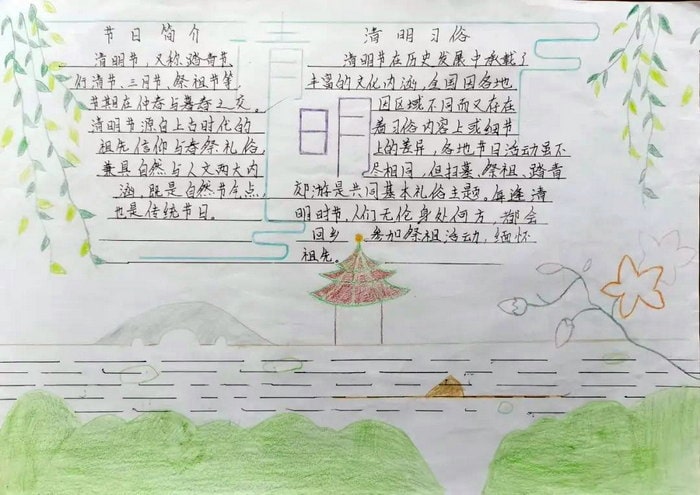 节日简介
清明节，又称踏青节、
行清节、三月节、祭祖节等，
节期在仲春与暮春之交。
清明节源自上古时代的
祖先信仰与春祭礼俗，
兼具自然与人文两大内
涵，既是自然节气点，
也是传统节日。
清明
清明习俗
清明节在历史发展中承载了
丰富的文化内涵，全国因各地
因区域不同而又存在
着习俗内容上或细节
上的差异，各地节日活动虽不
尽相同，但扫墓、祭祖、踏青
郊游是共同基本礼俗主题。每逢清
明时节，人们无论身处何方，都会
回乡 参加祭祖活动，缅怀
祖先。